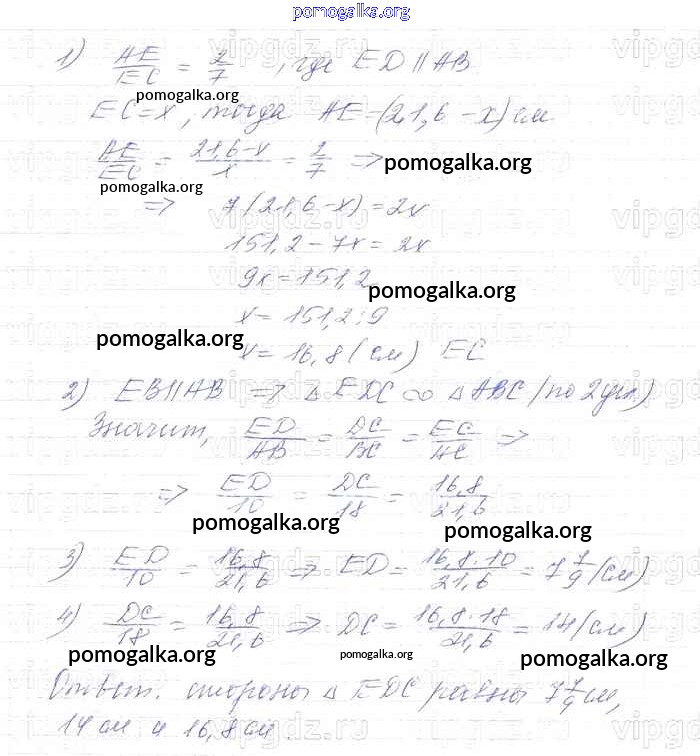 pomogalka.org
1) AE/EC = 2/7, где ED || AB
pomogalka.org
EC = x, тогда AE = (21,6 - x) см
AE/EC = (21,6 - x)/x = 2/7 ⇒ pomogalka.org
pomogalka.org
⇒ 7(21,6 - x) = 2x
151,2 - 7x = 2x
9x = 151,2
pomogalka.org
x = 151,2 : 9
pomogalka.org
x = 16,8 (см) EC
2) EB || AB ⇒ △ EDC ∞ △ ABC (по 2 угл)
Значит, ED/AB = DC/BC = EC/AC ⇒
⇒ ED/10 = DC/18 = 16,8/21,6
pomogalka.org pomogalka.org
3) ED/10 = 16,8/21,6 ⇒ ED = 16,8·10/21,6 = 7 7/9 (см)
4) DC/18 = 16,8/21,6 ⇒ DC = 16,8·18/21,6 = 14 (см)
pomogalka.org pomogalka.org pomogalka.org
Ответ: стороны △ EDC равны 7 7/9 см,
14 см и 16,8 см.